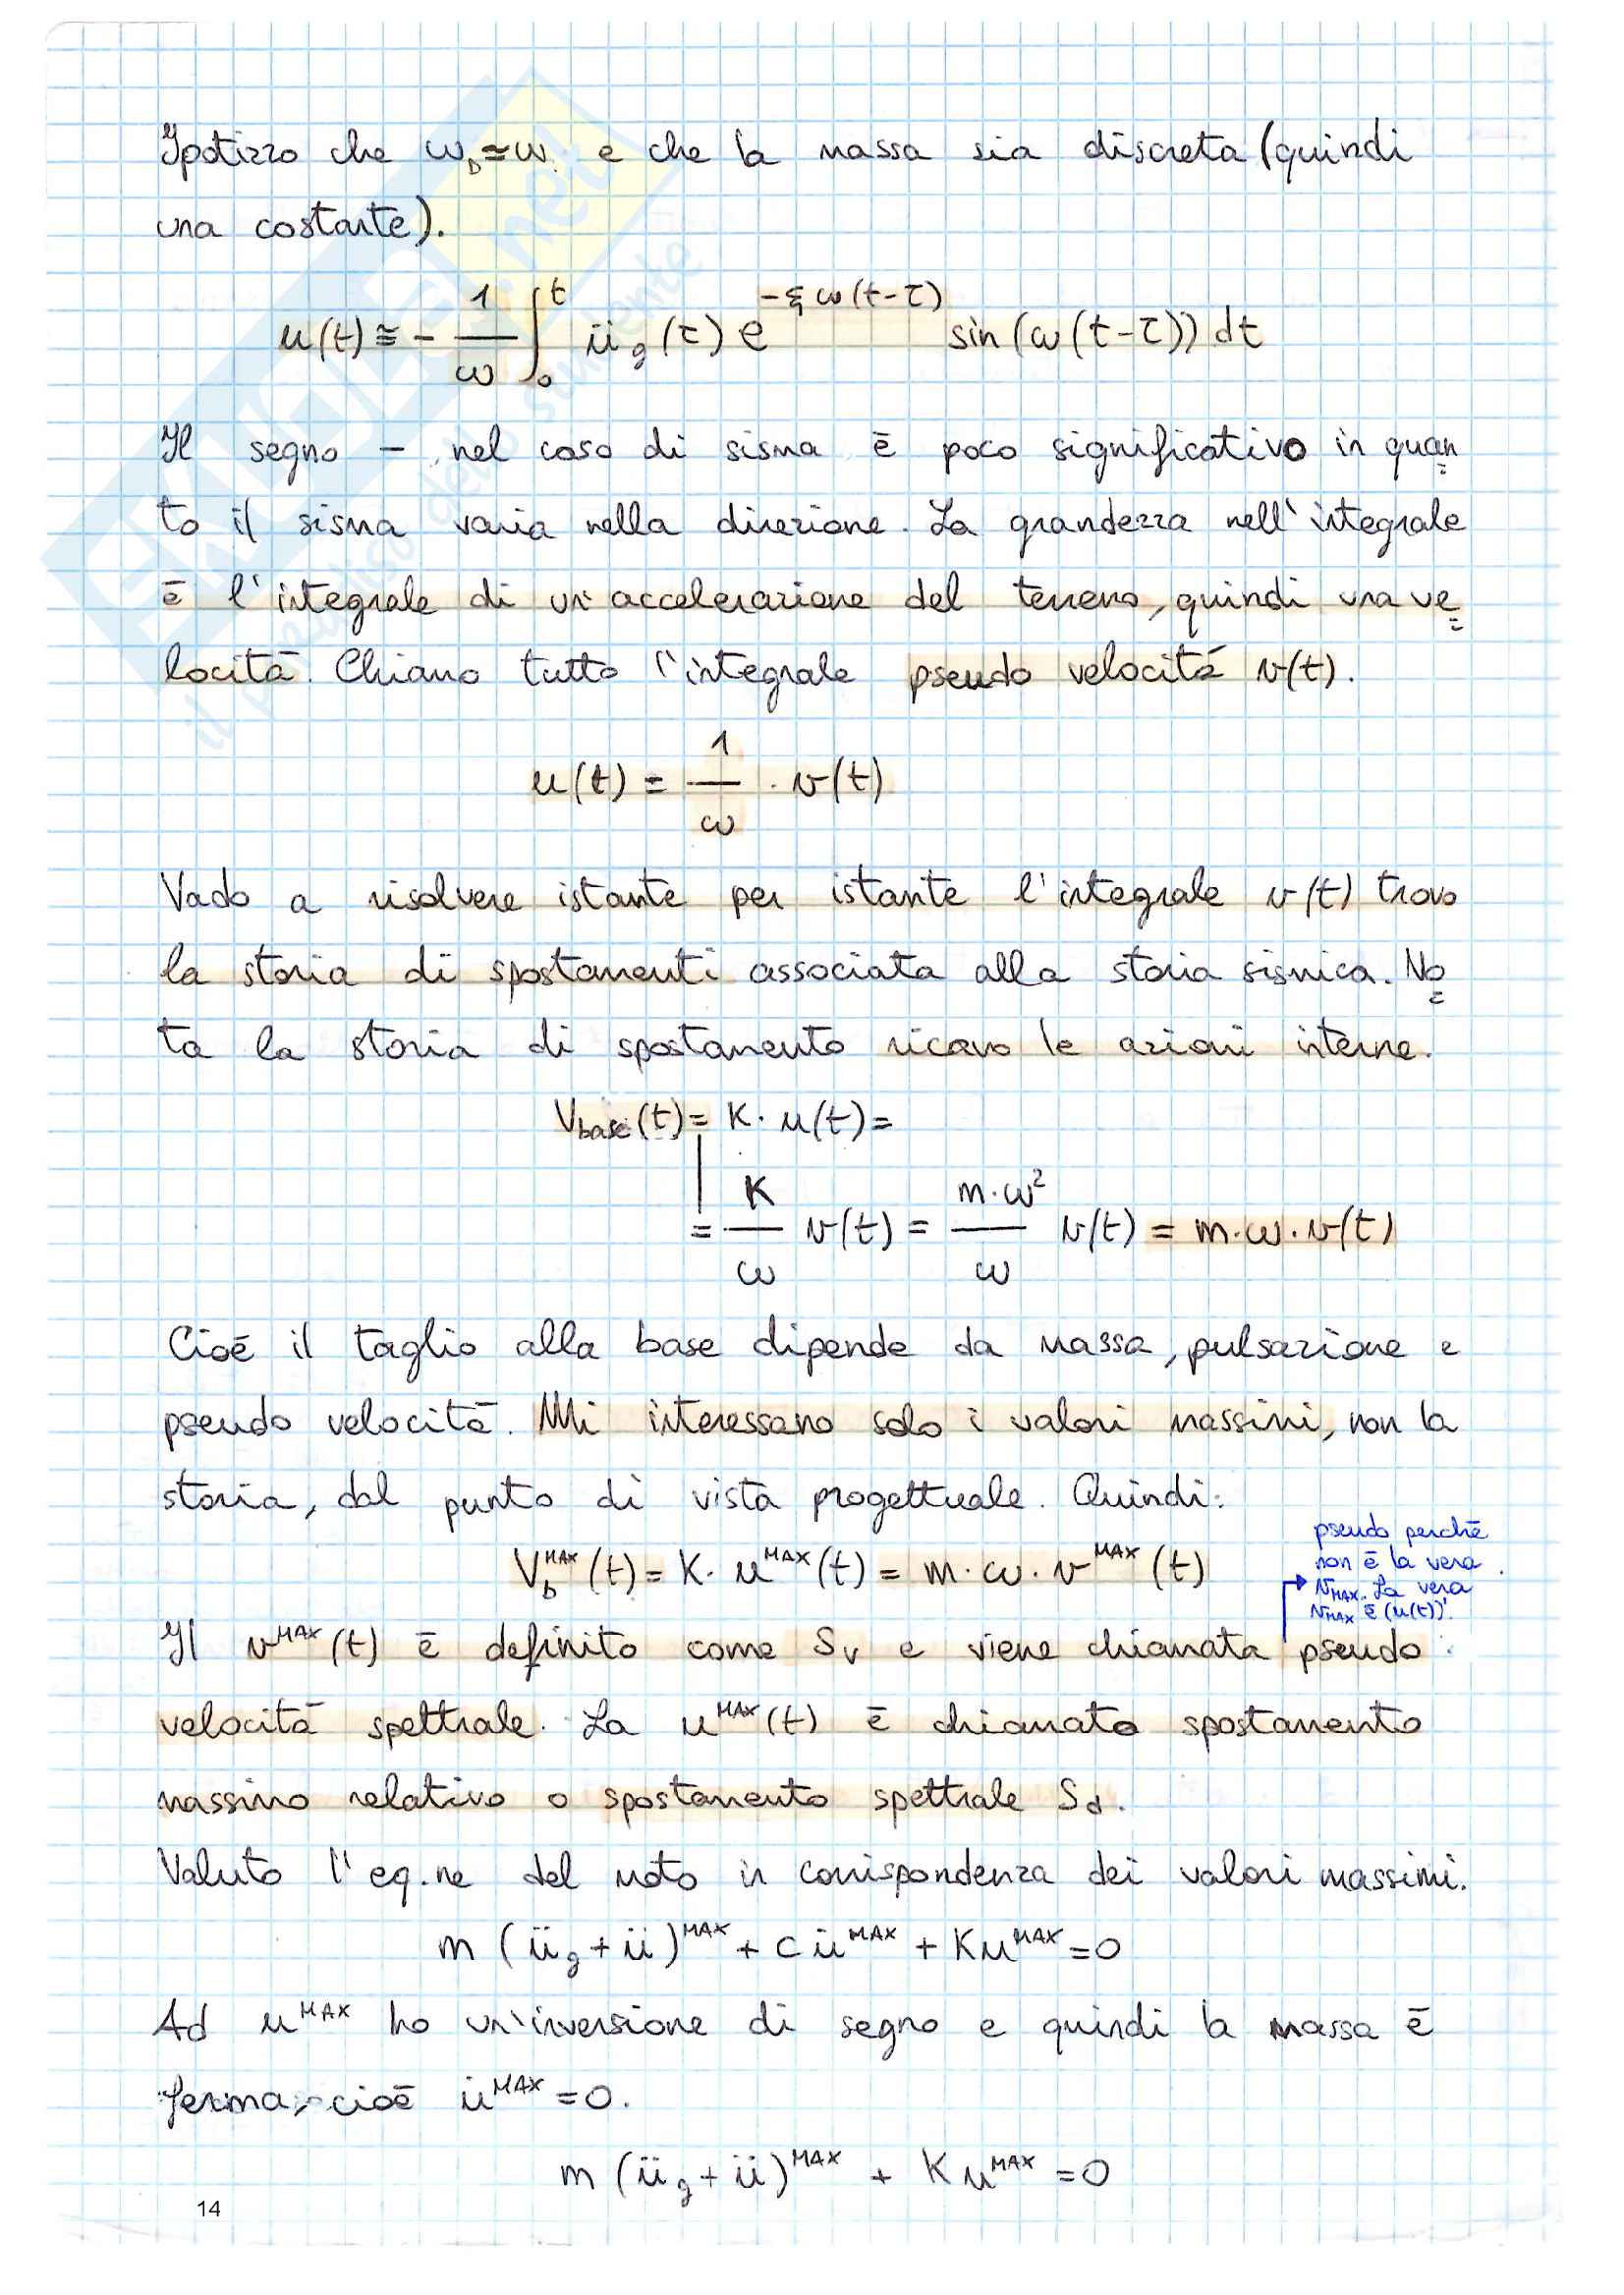 Ipotizzo che ω_D ≃ ω e che la massa sia discreta (quindi
una costante).
u(t) ≅ - 1/ω ∫₀ᵗ ü_g (τ) e^(-ξω(t-τ)) sin (ω(t-τ)) dt
Il segno - nel caso di sisma è poco significativo in quan
to il sisma varia nella direzione. La grandezza nell'integrale
è l'integrale di un'accelerazione del terreno, quindi una ve
locità. Chiamo tutto l'integrale pseudo velocità v(t).
u(t) = 1/ω · v(t)
Vado a risolvere istante per istante l'integrale v(t) trovo
la storia di spostamenti associata alla storia sismica. No
ta la storia di spostamento ricavo le azioni interne.
V_base (t) = K · u(t) =
= K/ω v(t) = m·ω²/ω v(t) = m·ω·v(t)
Cioè il taglio alla base dipende da massa, pulsazione e
pseudo velocità. Mi interessano solo i valori massimi, non la
storia, dal punto di vista progettuale. Quindi:
pseudo perchè
non è la vera
v_MAX. La vera
v_MAX è (u(t))'.
V_b^MAX (t) = K · u^MAX (t) = m · ω · v^MAX (t)
Il v^MAX (t) è definito come S_v e viene chiamata pseudo
velocità spettrale. La u^MAX (t) è chiamato spostamento
massimo relativo o spostamento spettrale S_d.
Valuto l'eq.ne del moto in corrispondenza dei valori massimi.
m (ü_g + ü)^MAX + c u̇^MAX + K u^MAX = 0
Ad u^MAX ho un'inversione di segno e quindi la massa è
ferma, cioè u̇^MAX = 0.
m (ü_g + ü)^MAX + K u^MAX = 0
14